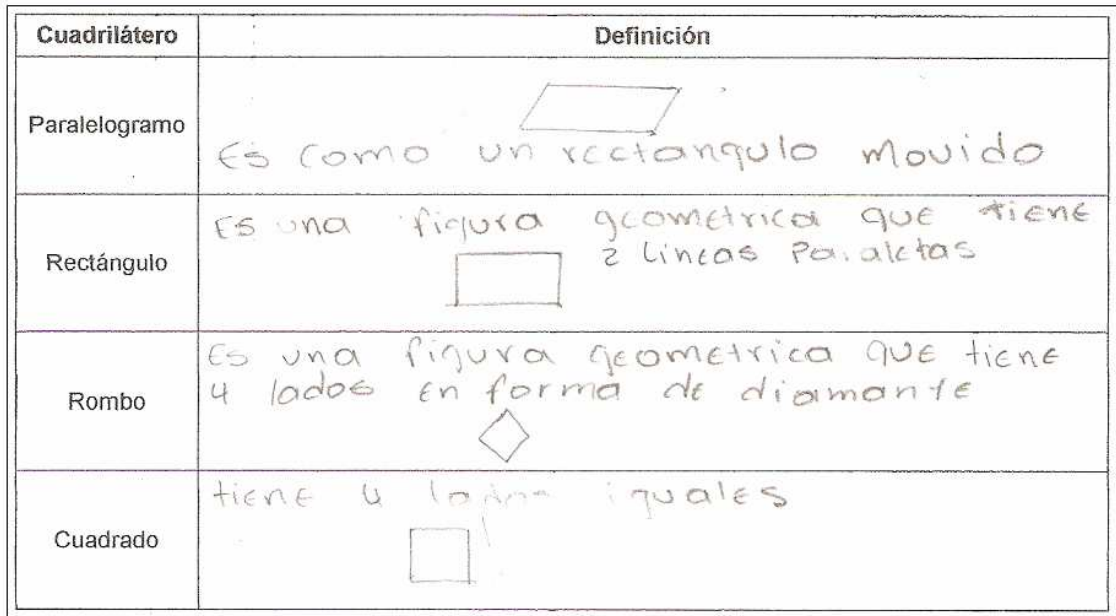 Cuadrilátero
Definición
Paralelogramo
Es como un rectangulo movido
Rectángulo
Es una figura geometrica que tiene
2 lineas
Rombo
Es una figura geometrica que tiene
4 lados en forma de diamante
Cuadrado
tiene 4 iguales